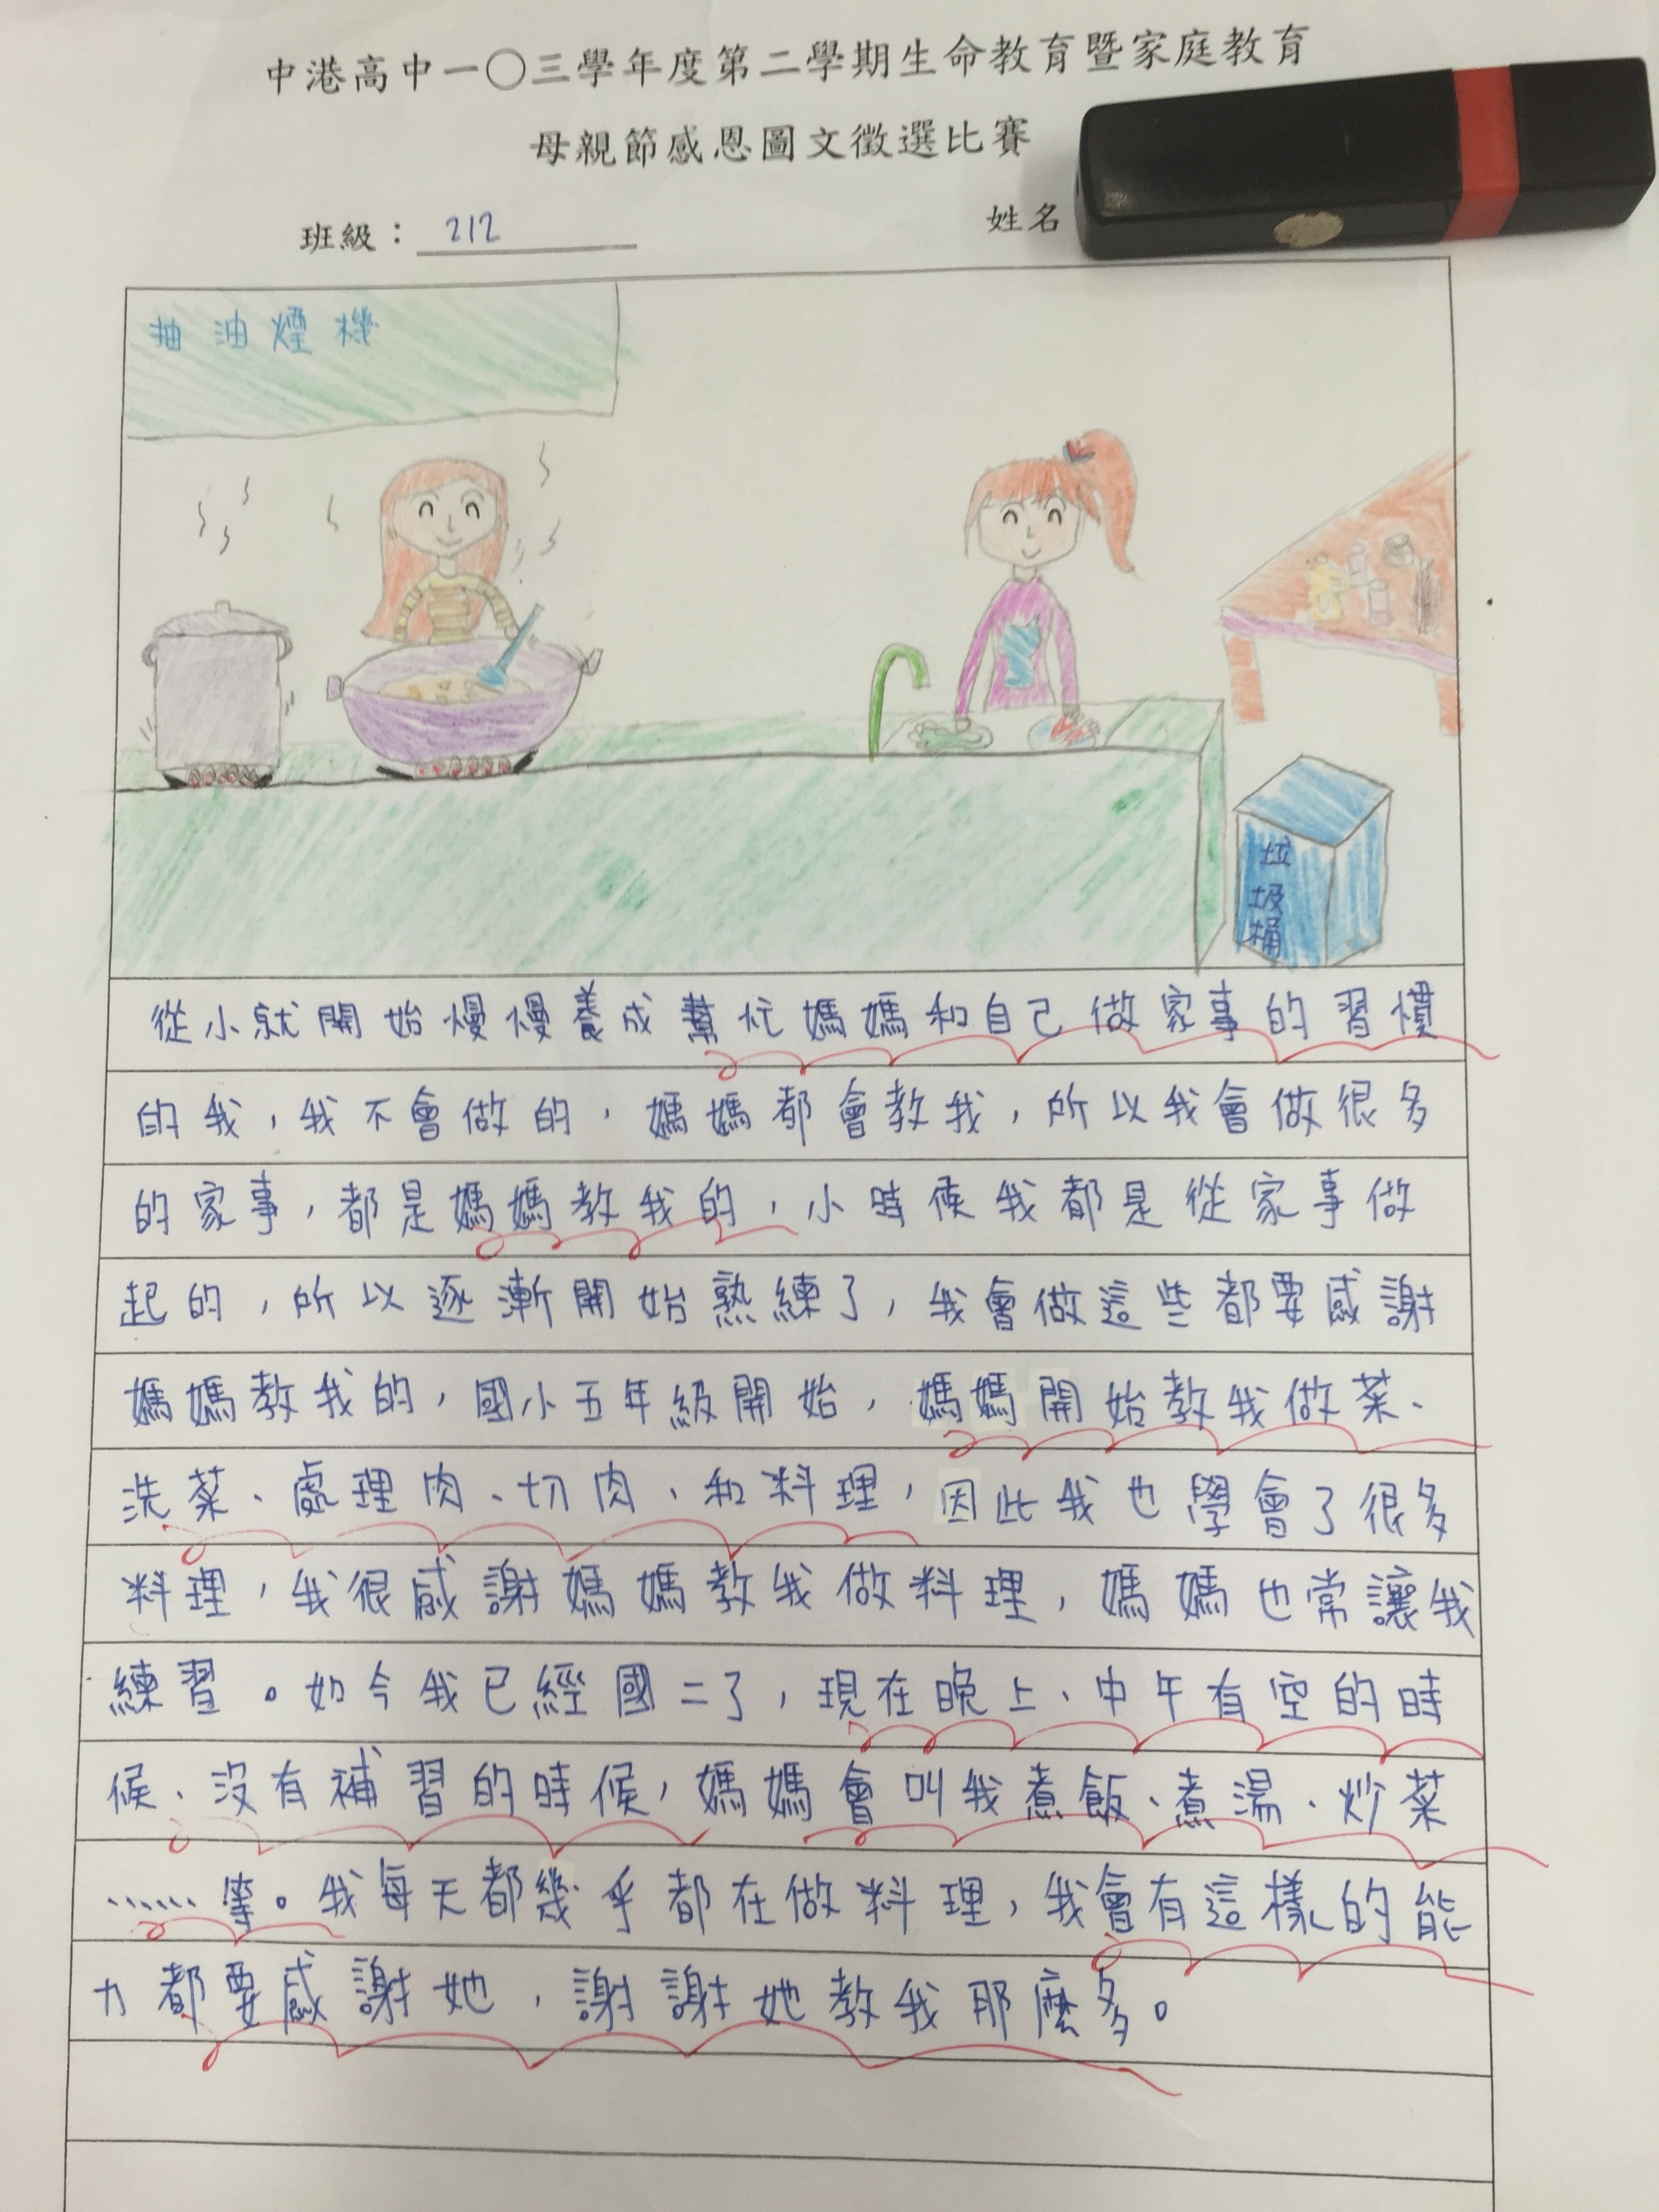 中港高中一〇三學年度第二學期生命教育暨家庭教育
母親節感恩圖文徵選比賽
班級：212
姓名
抽油煙機
垃圾桶
從小就開始慢慢養成幫忙媽媽和自己做家事的習慣
的我，我不會做的，媽媽都會教我，所以我會做很多
的家事，都是媽媽教我的，小時候我都是從家事做
起的，所以逐漸開始熟練了，我會做這些都要感謝
媽媽教我的，國小五年級開始，媽媽開始教我做菜、
洗菜、處理肉、切肉、和料理，因此我也學會了很多
料理，我很感謝媽媽教我做料理，媽媽也常讓我
練習。如今我已經國二了，現在晚上、中午有空的時
候、沒有補習的時候，媽媽會叫我煮飯、煮湯、炒菜
……等。我每天都幾乎都在做料理，我會有這樣的能
力都要感謝她，謝謝她教我那麼多。